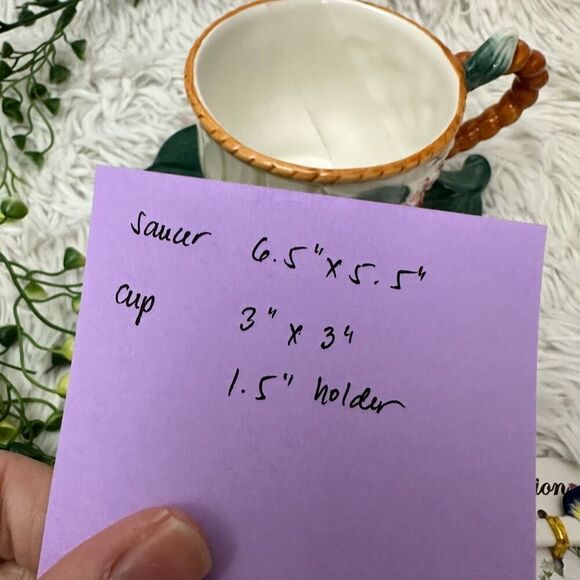 saucer 6.5" x 5.5"
cup 3" x 3"
1.5" holder
ion